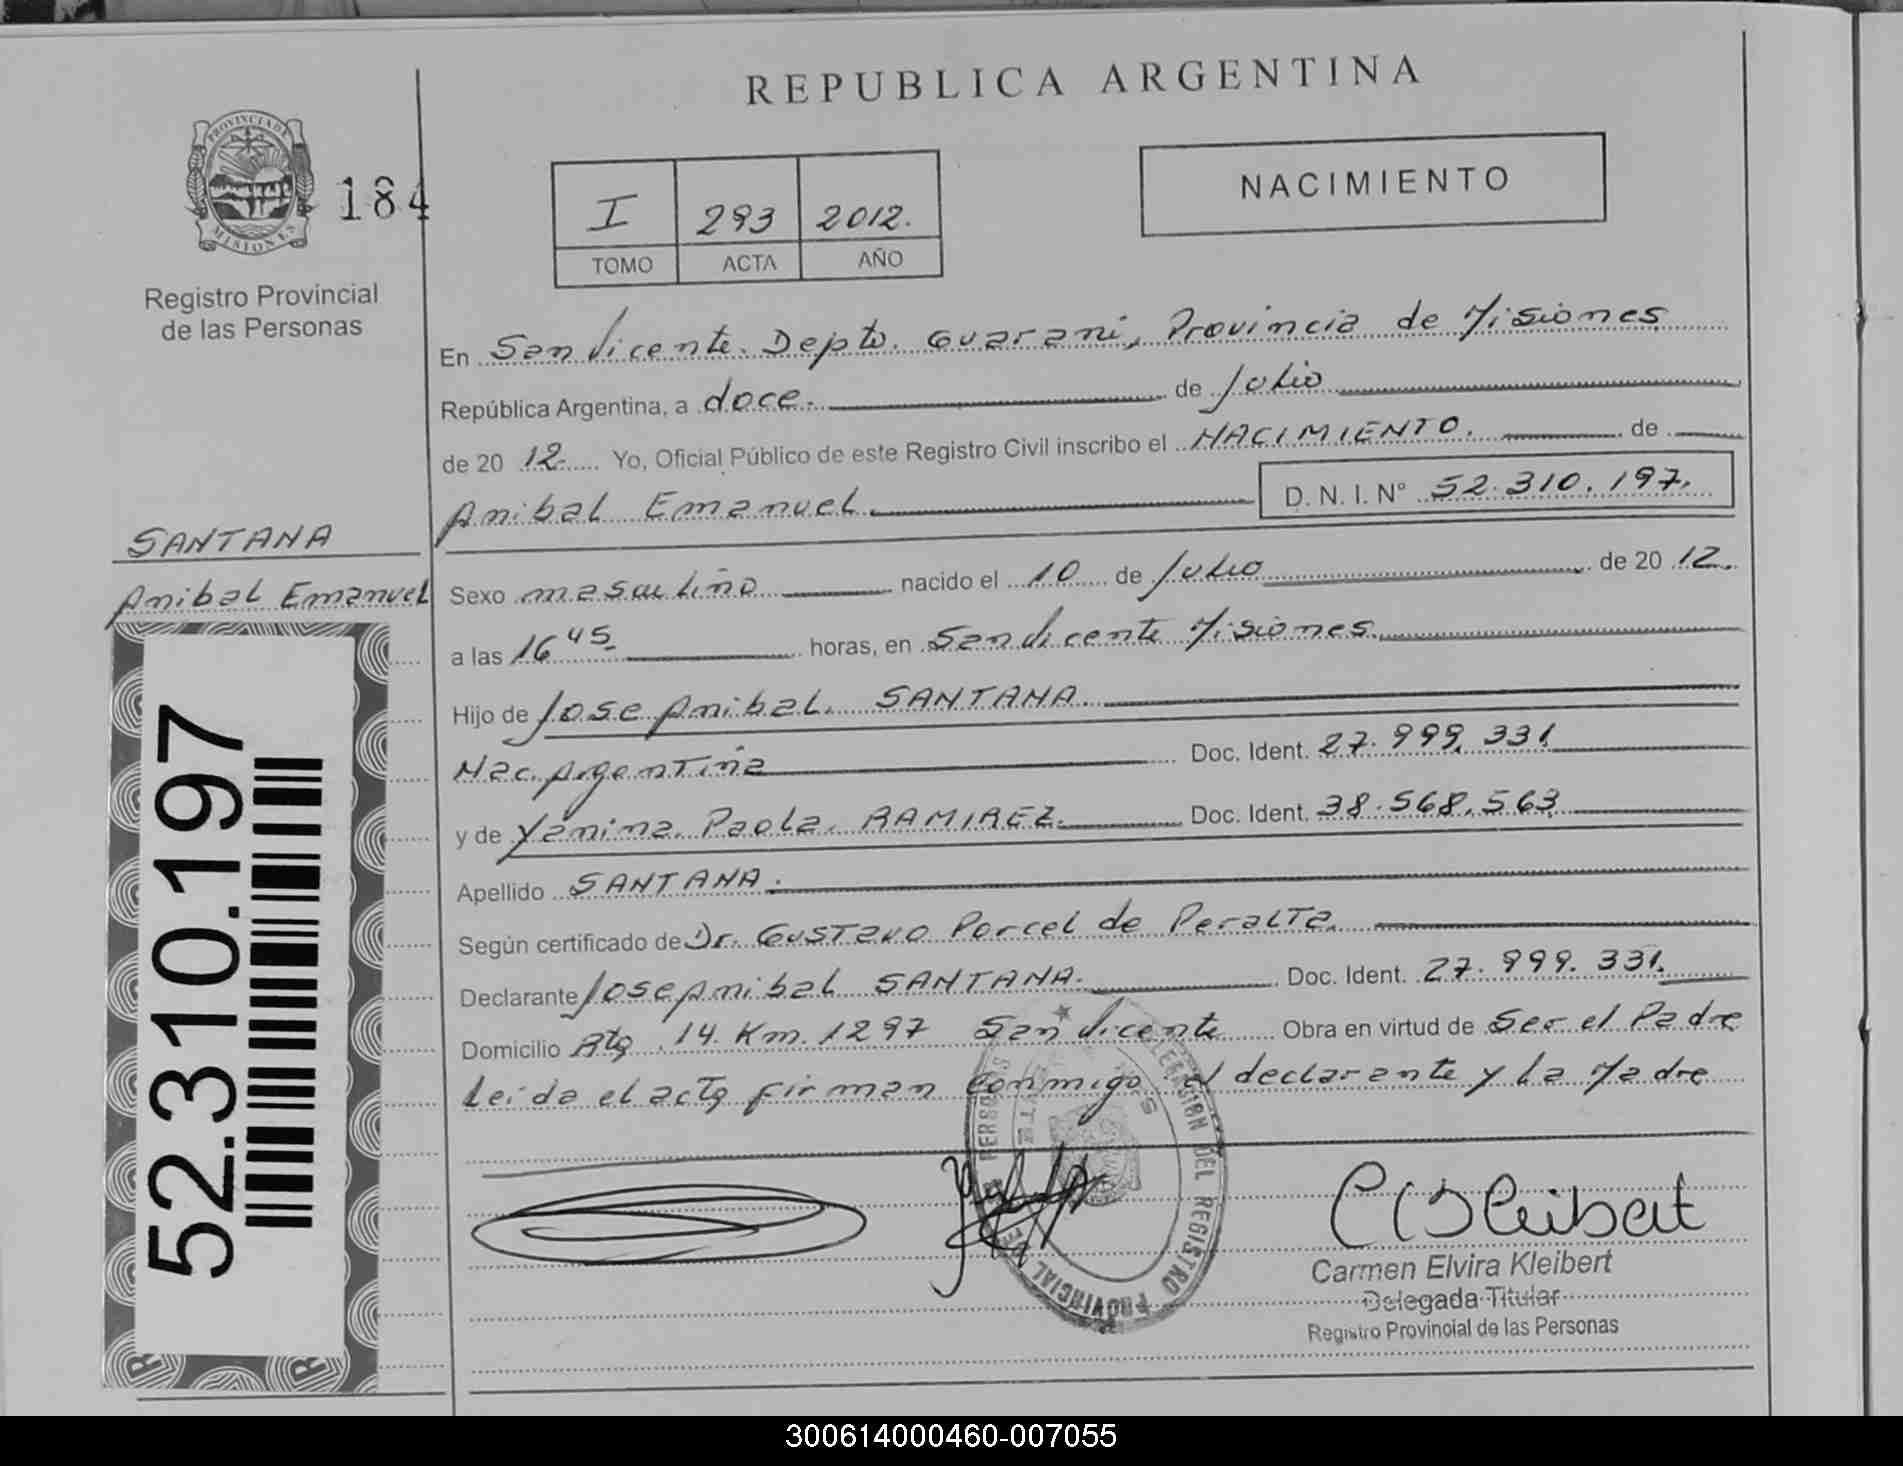 REPUBLICA ARGENTINA
PROVINCIA DE
MISIONES
184
Registro Provincial
de las Personas
I 293 2012.
TOMO ACTA AÑO
NACIMIENTO
En San Vicente. Depto. Guarani, Provincia de Misiones
República Argentina, a doce. de Julio
de 20 12 Yo, Oficial Público de este Registro Civil inscribo el NACIMIENTO. de
Anibal Emanuel D. N. I. N° 52.310.197.
SANTANA
Anibal Emanuel
Sexo masculino nacido el 10 de Julio de 20 12.
a las 16 45 horas, en San Vicente Misiones.
Hijo de Jose Anibal. SANTANA.
Nac. Argentina Doc. Ident. 27.999.331
y de Yanina Paola RAMIREZ. Doc. Ident. 38.568.563
Apellido SANTANA.
Según certificado de Dr. Gustavo Porcel de Peralta.
Declarante Jose Anibal SANTANA. Doc. Ident. 27.999.331.
Domicilio Rta. 14. Km. 1297 San Vicente Obra en virtud de Ser el Padre
Leida el acta firman conmigo el declarante y la Madre
52.310.197
DELEGACION DEL REGISTRO PROVINCIAL DE PERSONAS
SAN
C Kleibert
Carmen Elvira Kleibert
Delegada Titular
Registro Provincial de las Personas
300614000460-007055